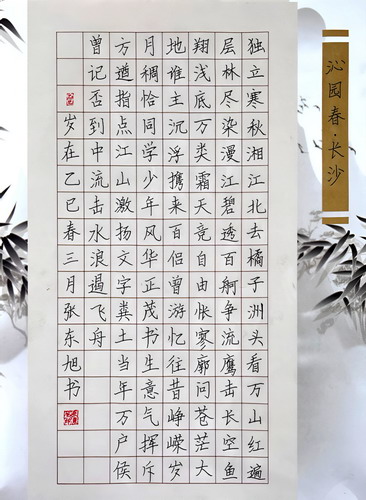 沁园春·长沙
独立寒秋湘江北去橘子洲头看万山红遍
层林尽染漫江碧透百舸争流鹰击长空鱼
翔浅底万类霜天竞自由怅寥廓问苍茫大
地谁主沉浮携来百侣曾游忆往昔峥嵘岁
月稠恰同学少年风华正茂书生意气挥斥
方遒指点江山激扬文字粪土当年万户侯
曾记否到中流击水浪遏飞舟
岁在乙巳春三月张东旭书